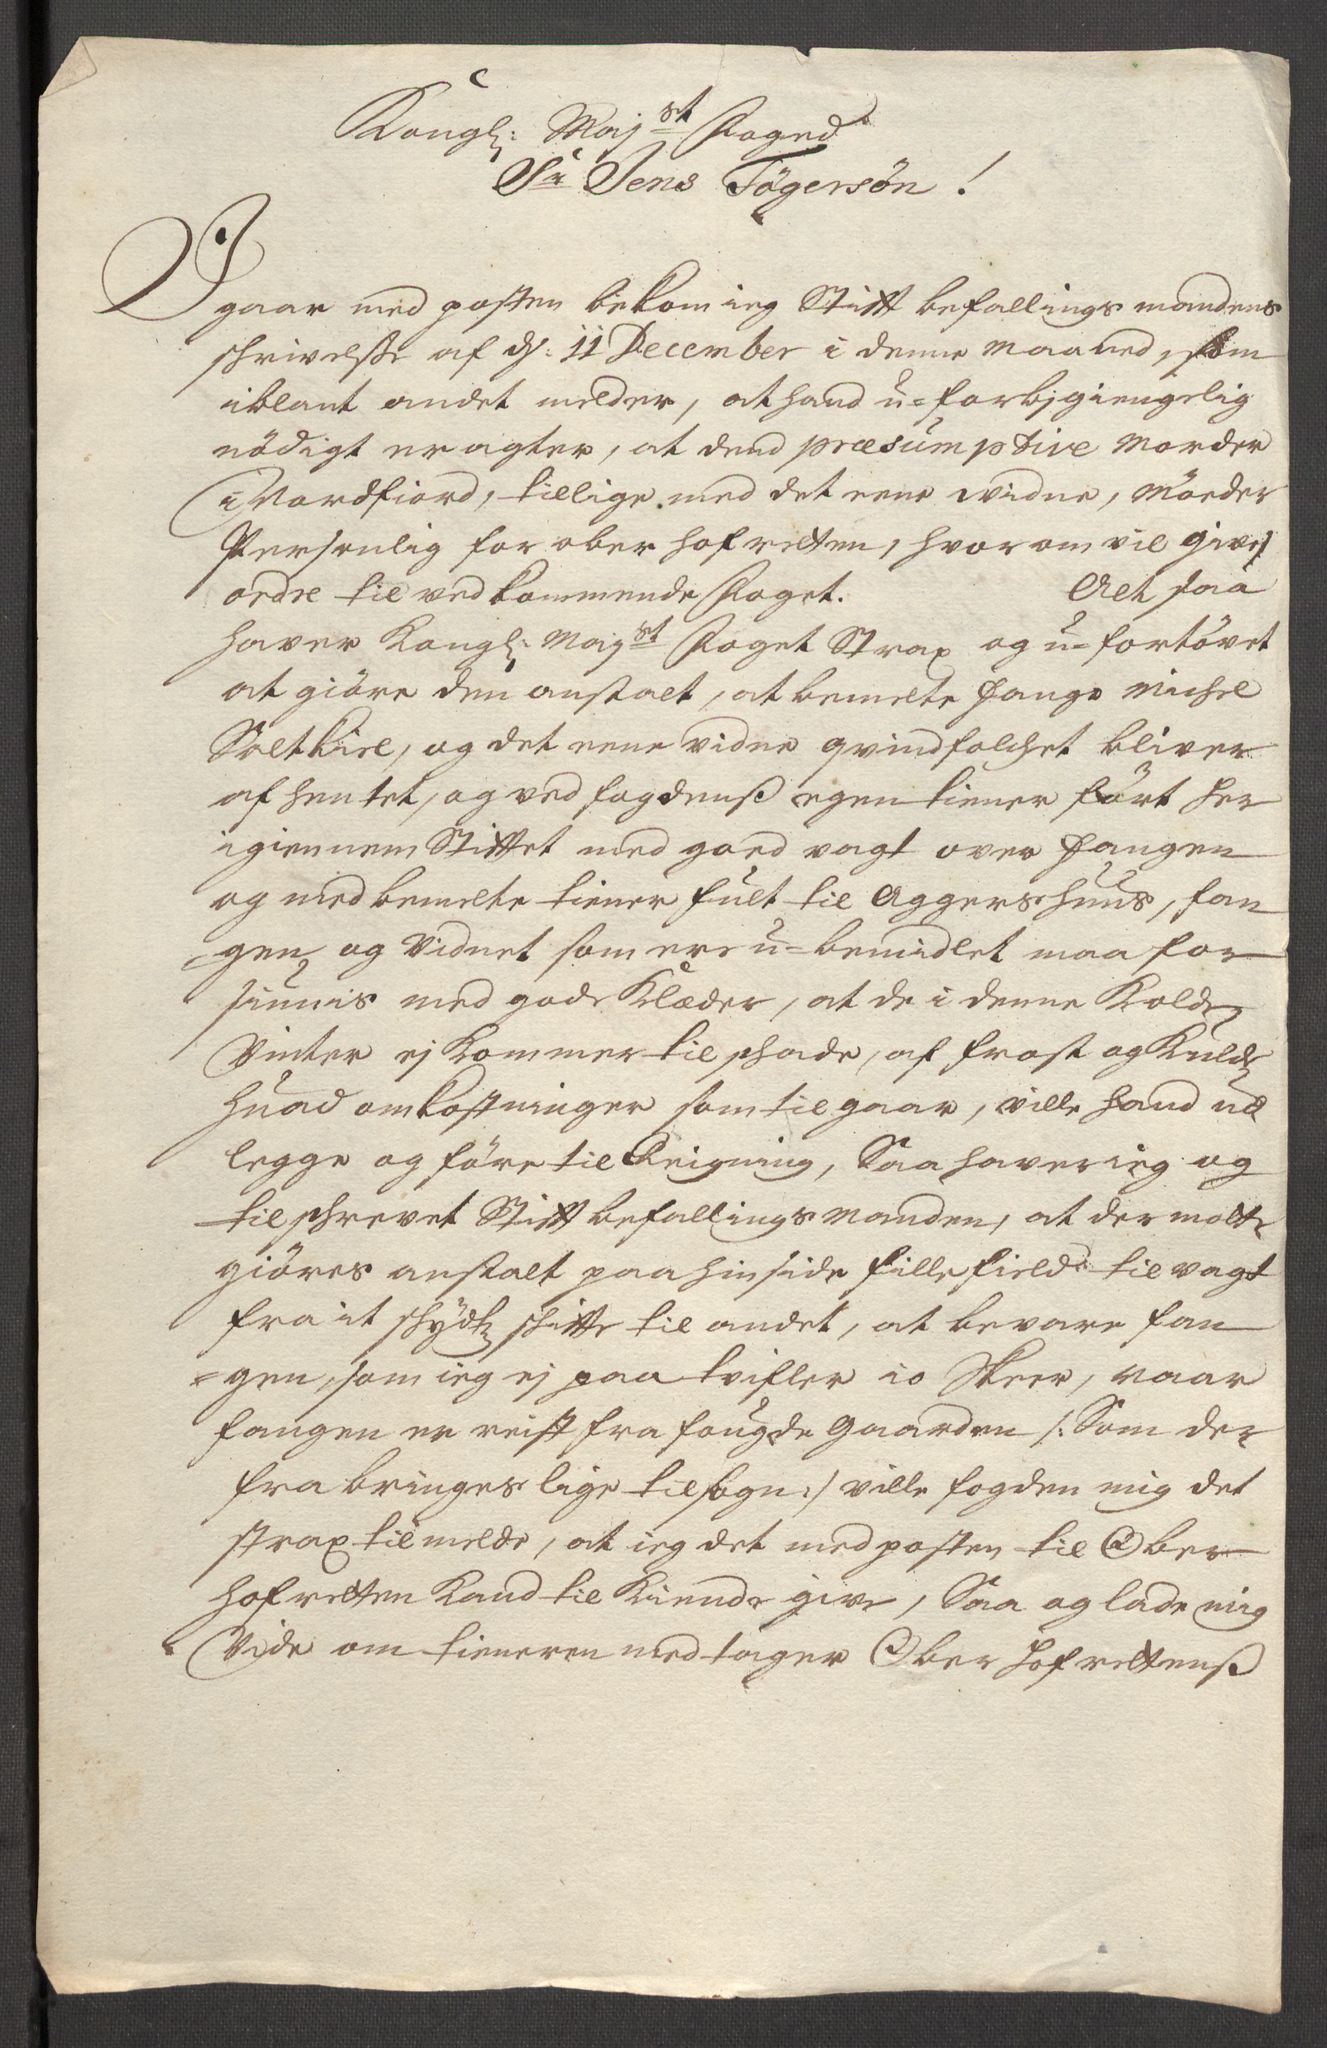 Kongl: Maj:st Foged
Sr Jens Tögersön!
I gaar med posten bekom ieg Stift befallings mandens
schrivelsse af d: 11 December i denne maaned, som
iblant andet melder, at hand u-forbjgiengelig
nödigt eragter, at dend præsumptive morder
i Nordfiord, tillige med det eene vidne, möeder
Personlig for ober hof retten, hvorom vil gives
ordre til vedkommende Foget. Alt saa
haver Kongl: Maj:st Foget Strax og u-fortövet
at giöre den anstalt, at bemelte fange Michel
Soltkiel, og det eene vidne qvindfolchet bliver
af hentet, og ved fogdenss egen tiener fört her
igiennem Stiftet med goed vagt over fangen
og med bemelte tiener fult til Aggershuus, fan
=gen og Vidnet som ere u-bemidlet maa for
siunis med gode Klæder, at de i denne Kolde
Vinter ej kommer til schade, af frost og Kulde
huad omkostninger som til gaar, ville hand ud
legge og före til Reigning, Saa haver ieg og
tilschrevet Stift befallings manden, at der motte
giöres anstalt paa hin side fillefield til vagt
fra it schydtz schifte til andet, at bevare fan
=gen, som ieg ej paa tvifler io Skeer, naar
fangen er reist fra fougde gaarden /: Som der
fra bringes lige til Sogn :/ ville fogden mig det
strax tilmelde, at ieg det med posten til Ober
hof retten Kand til Kiende give, Saa og lade mig
Vide om tieneren med tager Ober hof rettenss